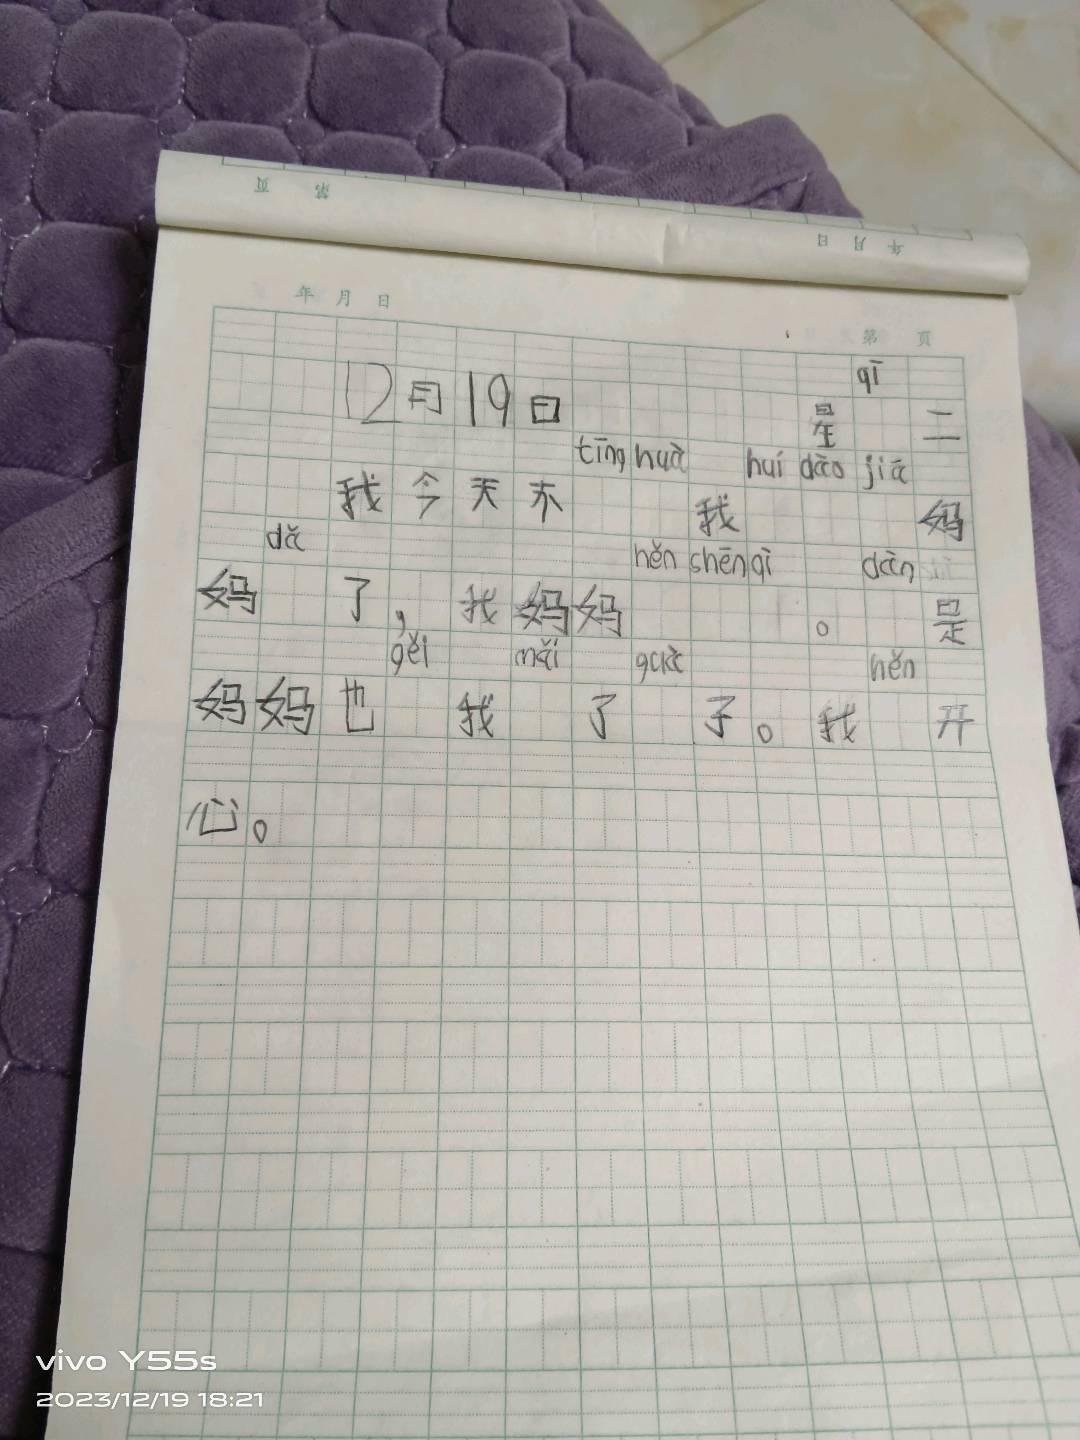 页 第
年 月 日
年 月 日
第 页
qī
12月19日 星 二
tīng huà huí dào jiā
我今天不 我 妈
dǎ hěn shēng qì dàn
妈 了，我妈妈 。 是
gěi mǎi guǒ hěn
妈妈也 我 了 子。我 开
心。
vivo Y55s
2023/12/19 18:21